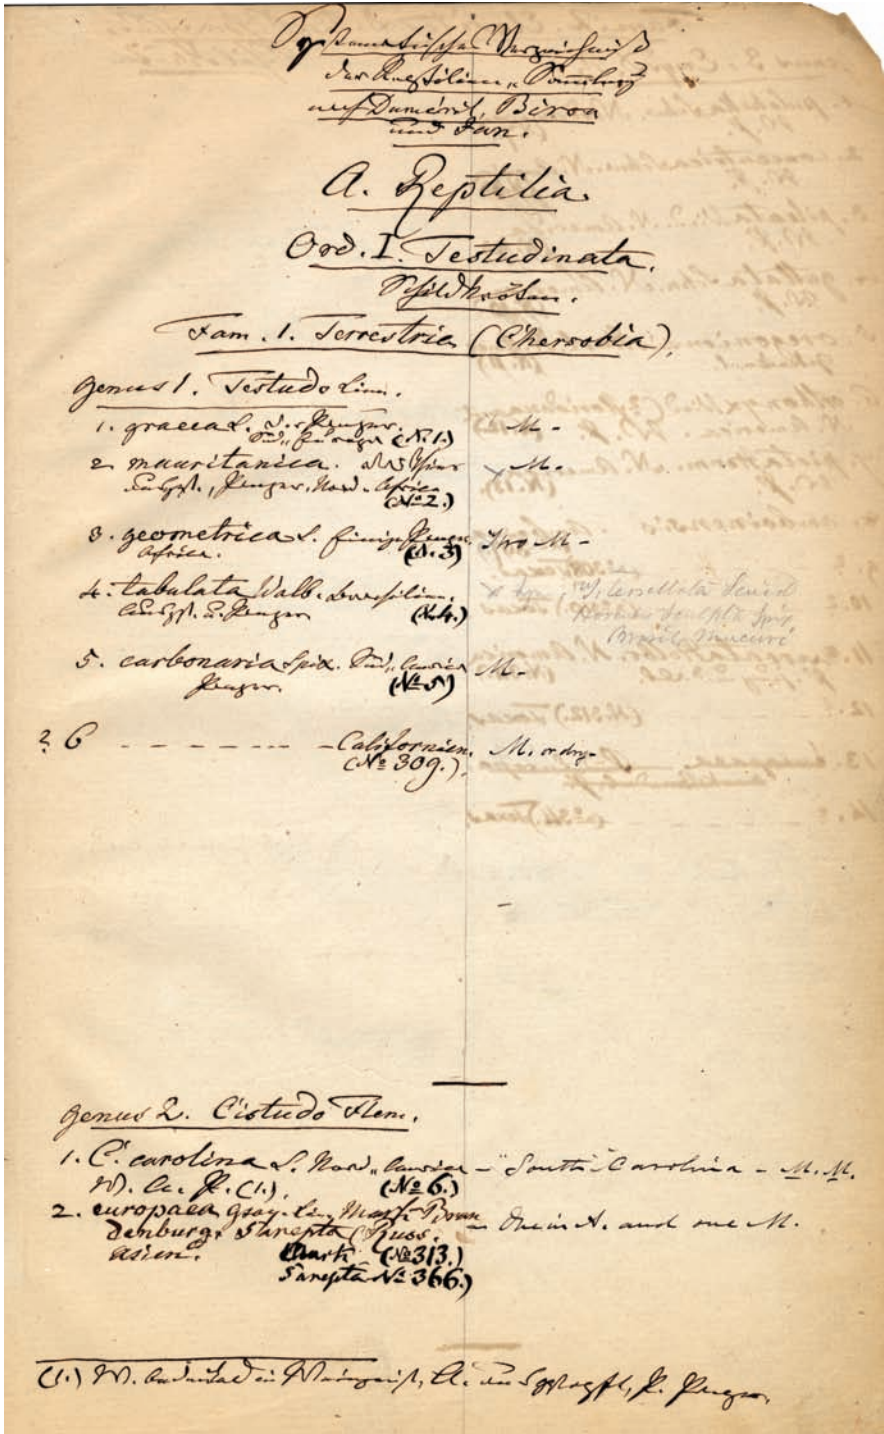 Systematisches Verzeichniß
der Reptilien-Sammlung
nach Duméril, Bibron
und Jan.
A. Reptilia.
Ord. I. Testudinata.
Schildkröten.
Fam. 1. Terrestria (Chersobia).
Genus 1. Testudo Linn.
1. graeca L. 2 Panzer.
Süd-Europa (N. 1.) M -
2. mauritanica.
Ausgst., Panzer. Nord-Africa M.
(No 2.)
3. geometrica L. einige Panzer. Two M -
Africa. (N. 3)
4. tabulata Walb. Brasilien.
Ausgst. u. Panzer (N. 4.)
Brasil. Mucuri
5. carbonaria Spix. Süd-America M -
Panzer. (No 5)
? 6 - - - - - - - Californien. M. or dry -
(No 309.)
Genus 2. Cistudo Flem.
1. C. carolina L. Nord-America - "South" Carolina - M. M.
W. A. P. (1.), (No 6.)
2. europaea Gray. Mark Bran
denburg. Sarepta (Russ. - One in A. and one M.
Asien. Mark (No 313.)
Sarepta No 366.)
(1.) W. bedeutet in Weingeist, A. ausgestopft, P. Panzer.